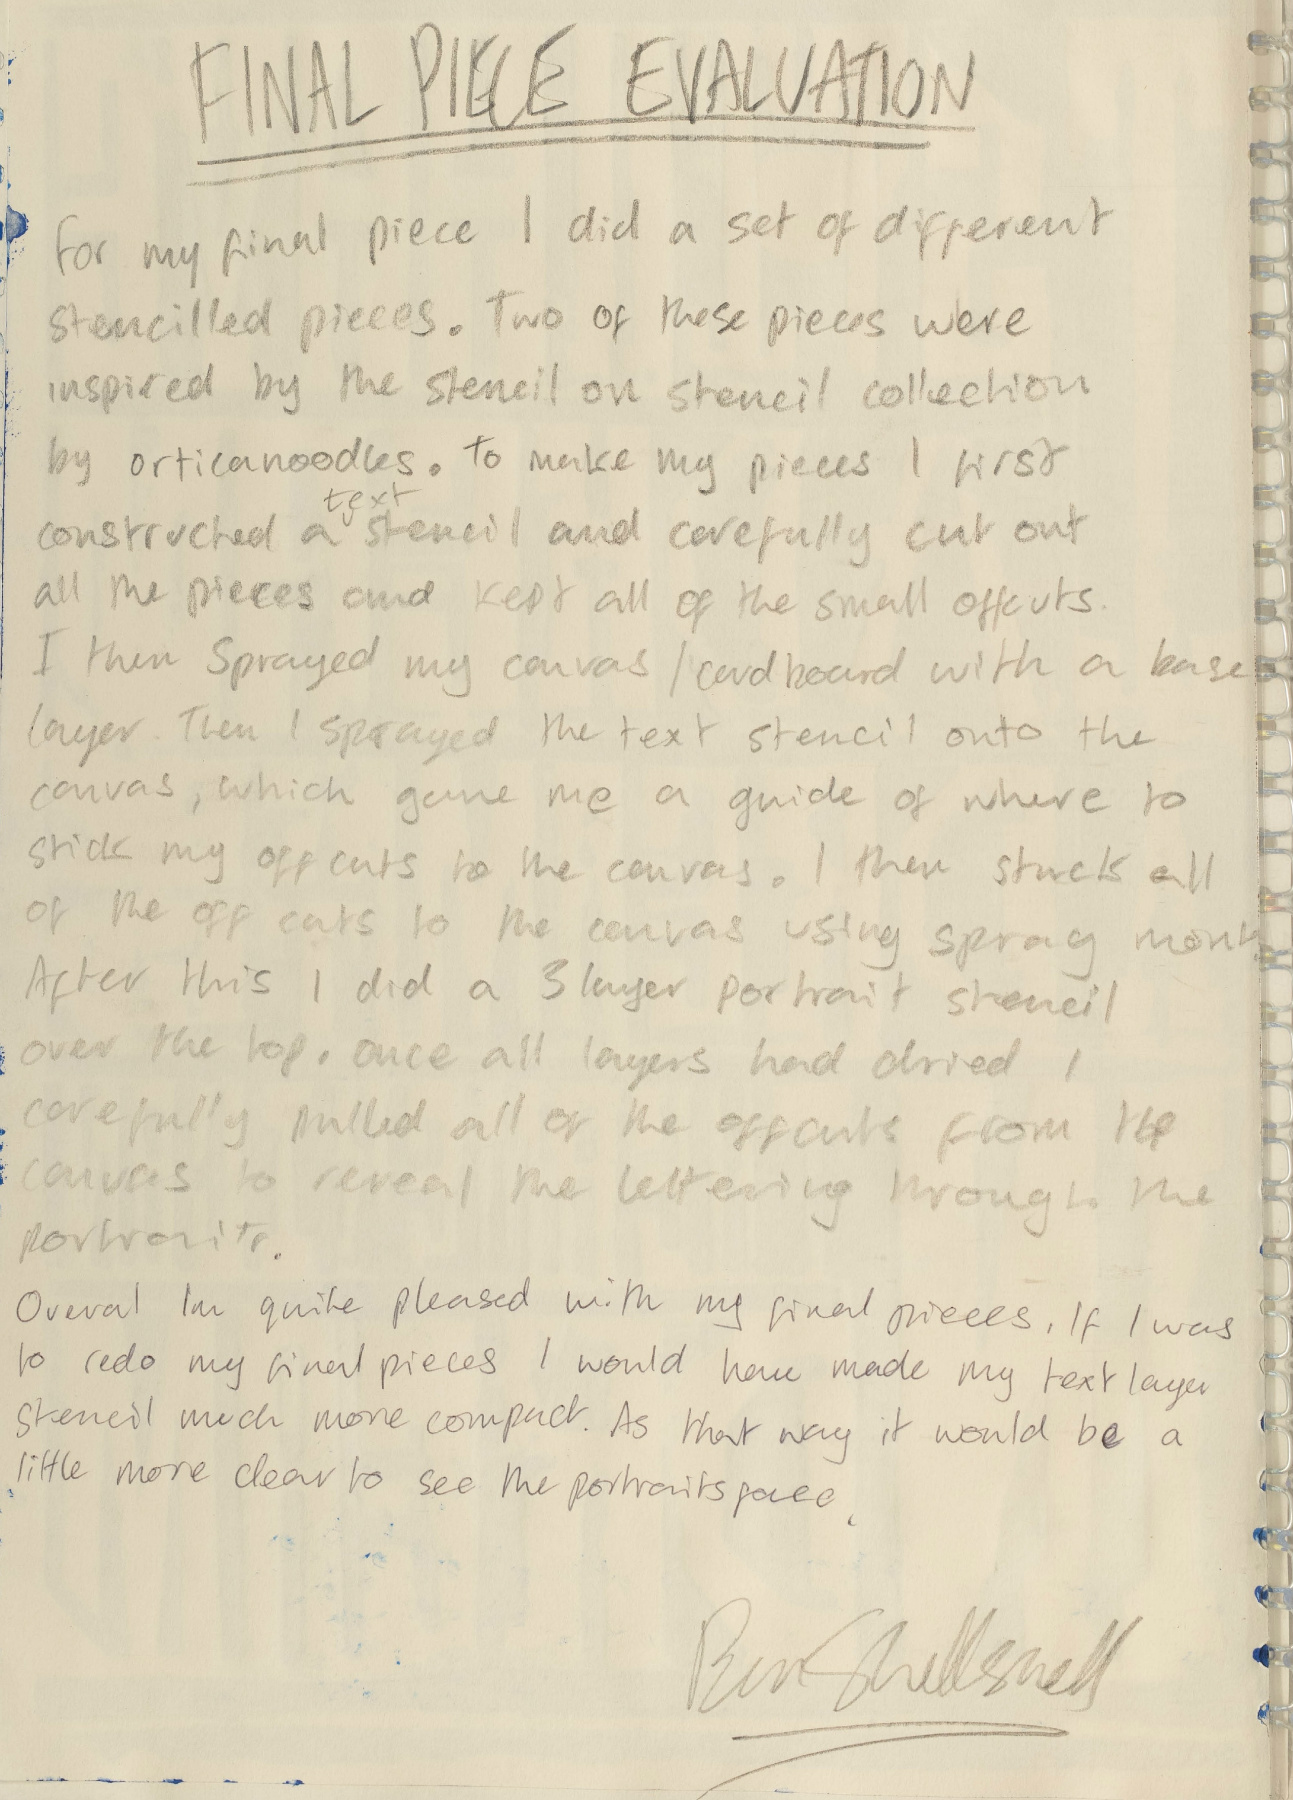 FINAL PIECE EVALUATION
For my final piece I did a set of different
stencilled pieces. Two of these pieces were
inspired by the stencil on stencil collection
by orticanoodles. To make my pieces I first
text
constructed a stencil and carefully cut out
all the pieces and kept all of the small offcuts.
I then sprayed my canvas / cardboard with a base
layer. Then I sprayed the text stencil onto the
canvas, which gave me a guide of where to
stick my off cuts to the canvas. I then stuck all
of the off cuts to the canvas using spray mount
After this I did a 3 layer portrait stencil
over the top. once all layers had dried I
carefully pulled all of the offcuts from the
canvas to reveal the lettering through the
portraits.
Overal Im quite pleased with my final pieces. If I was
to redo my final pieces I would have made my text layer
stencil much more compact. As that way it would be a
little more clear to see the portraits face.
Ben Shellsnell